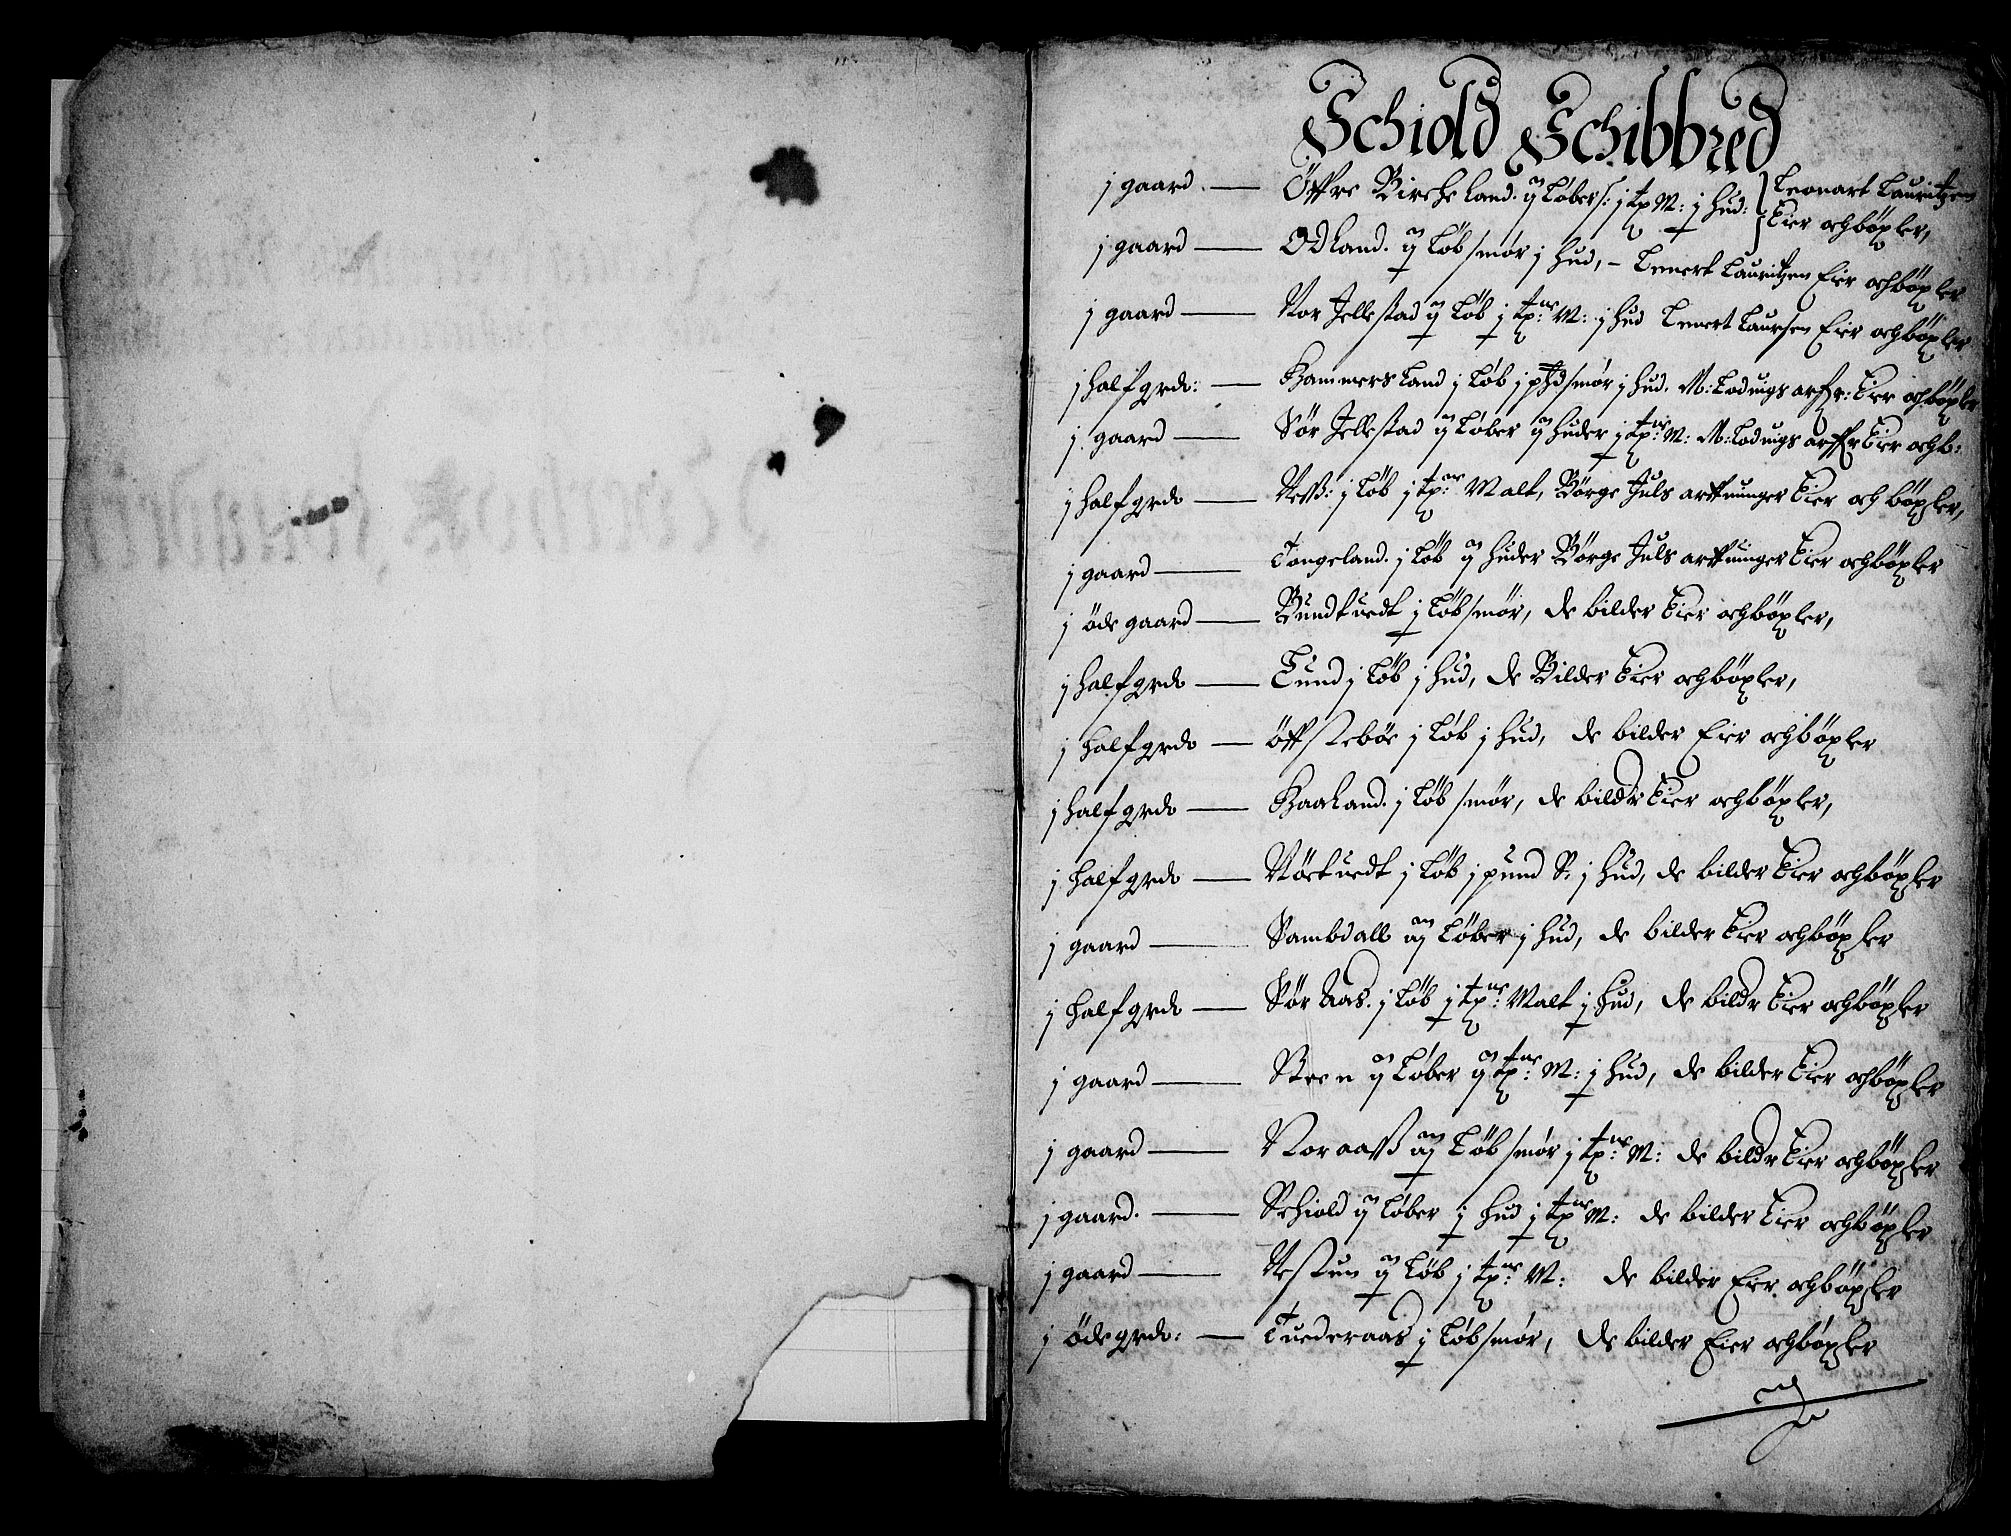 Schiold Schibbred
j gaard — Öffre Birche land. ij løber s: j tp M: j hud: } Leonart Lauritzen
Eier och böxler,
j gaard — Odland. ij løb smør j hud, – Lenert Lauritzen Eier och böxler
j gaard — Nor Jellestad ij løb j tp:ne M: j hud Lenert Laursen Eier och böxler
j half grd: — Hammersland j løb j pd smør j hud, M: Lodvigs arfr: Eier och böxler
j gaard — Sør Jellestad ij løber ij huder j tp:ne M: M: Lodvigs arffr Eier och b:
j half grd — Ness: j løb j tp:ne Malt, Børge Juls arffuinger Eier och böxler,
j gaard — Tongeland. j løb ij huder Børge Juls arffuinger Eier och böxler
j öde gaard — Bundtuedt j løb smør, de bilder Eier och böxler,
j half grd — Lund j løb j hud, de Bilder Eier och böxler,
j half grd — öffstebøe j løb j hud, de bilder Eier och böxler
j half grd — Haaland. j løb smør, de bildr Eier och böxler,
j half grd — Nøetuedt j løb j pund S: j hud, de bilder Eier och böxler
j gaard — Sambdall iij løber j hud, de bilder Eier och böxler
j half grd — Sør Aas. j løb j tp:ne Malt j hud, de bildr Eier och böxler
j gaard — Steen ij løber ij tp:ne M: j hud, de bilder Eier och böxler
j gaard — Nor aass iij løb smør j tp:ne M: de bildr Eier och böxler
j gaard. — Schiold ij løber j hud j tp:ne M: de bilder Eier och böxler
j gaard — Nestun ij løb j tp:ne M: de bilder Eier och böxler
j öde grd: — Tuederaas j løb smør, de bilder Eier och böxler